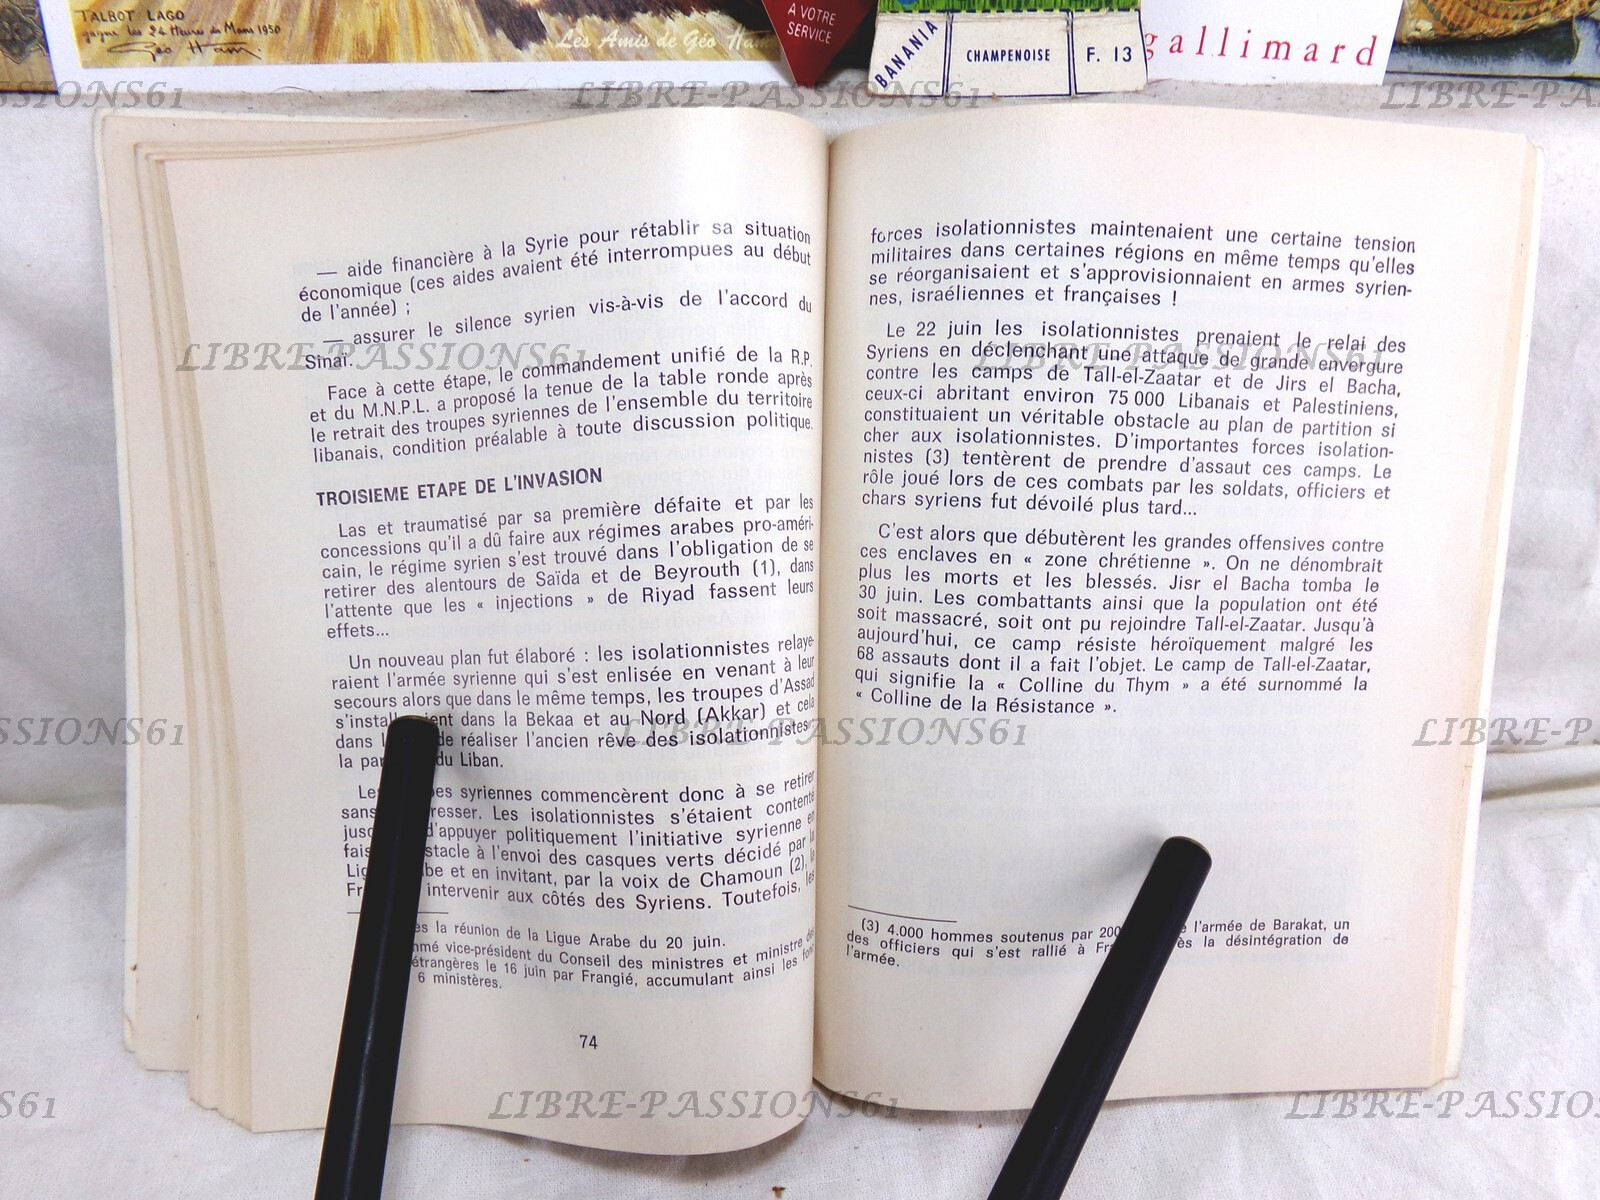 TALBOT LAGO
gagne les 24 Heures du Mans 1950
Géo Ham.
Les Amis de Géo Ham
A VOTRE
SERVICE
BANANIA
CHAMPENOISE
F. 13
gallimard
LIBRE-PASSIONS61
— aide financière à la Syrie pour rétablir sa situation
économique (ces aides avaient été interrompues au début
de l'année) ;
— assurer le silence syrien vis-à-vis de l'accord du
Sinaï.
Face à cette étape, le commandement unifié de la R.P.
et du M.N.P.L. a proposé la tenue de la table ronde après
le retrait des troupes syriennes de l'ensemble du territoire
libanais, condition préalable à toute discussion politique.
TROISIEME ETAPE DE L'INVASION
Las et traumatisé par sa première défaite et par les
concessions qu'il a dû faire aux régimes arabes pro-améri-
cain, le régime syrien s'est trouvé dans l'obligation de se
retirer des alentours de Saïda et de Beyrouth (1), dans
l'attente que les « injections » de Riyad fassent leurs
effets...
Un nouveau plan fut élaboré : les isolationnistes relaye-
raient l'armée syrienne qui s'est enlisée en venant à leur
secours alors que dans le même temps, les troupes d'Assad
dans la Bekaa et au Nord (Akkar) et cela
dans de réaliser l'ancien rêve des isolationnistes
la du Liban.
syriennes commencèrent donc à se retirer
sans Les isolationnistes s'étaient contenté
d'appuyer politiquement l'initiative syrienne en
à l'envoi des casques verts décidé par la
et en invitant, par la voix de Chamoun (2), la
intervenir aux côtés des Syriens. Toutefois, les
la réunion de la Ligue Arabe du 20 juin.
vice-président du Conseil des ministres et ministre des
étrangères le 16 juin par Frangié, accumulant ainsi les
6 ministères.
74
forces isolationnistes maintenaient une certaine tension
militaires dans certaines régions en même temps qu'elles
se réorganisaient et s'approvisionnaient en armes syrien-
nes, israéliennes et françaises !
Le 22 juin les isolationnistes prenaient le relai des
Syriens en déclenchant une attaque de grande envergure
contre les camps de Tall-el-Zaatar et de Jirs el Bacha,
ceux-ci abritant environ 75 000 Libanais et Palestiniens,
constituaient un véritable obstacle au plan de partition si
cher aux isolationnistes. D'importantes forces isolation-
nistes (3) tentèrent de prendre d'assaut ces camps. Le
rôle joué lors de ces combats par les soldats, officiers et
chars syriens fut dévoilé plus tard...
C'est alors que débutèrent les grandes offensives contre
ces enclaves en « zone chrétienne ». On ne dénombrait
plus les morts et les blessés. Jisr el Bacha tomba le
30 juin. Les combattants ainsi que la population ont été
soit massacré, soit ont pu rejoindre Tall-el-Zaatar. Jusqu'à
aujourd'hui, ce camp résiste héroïquement malgré les
68 assauts dont il a fait l'objet. Le camp de Tall-el-Zaatar,
qui signifie la « Colline du Thym » a été surnommé la
« Colline de la Résistance ».
(3) 4.000 hommes soutenus par l'armée de Barakat, un
des officiers qui s'est rallié à la désintégration de
l'armée.